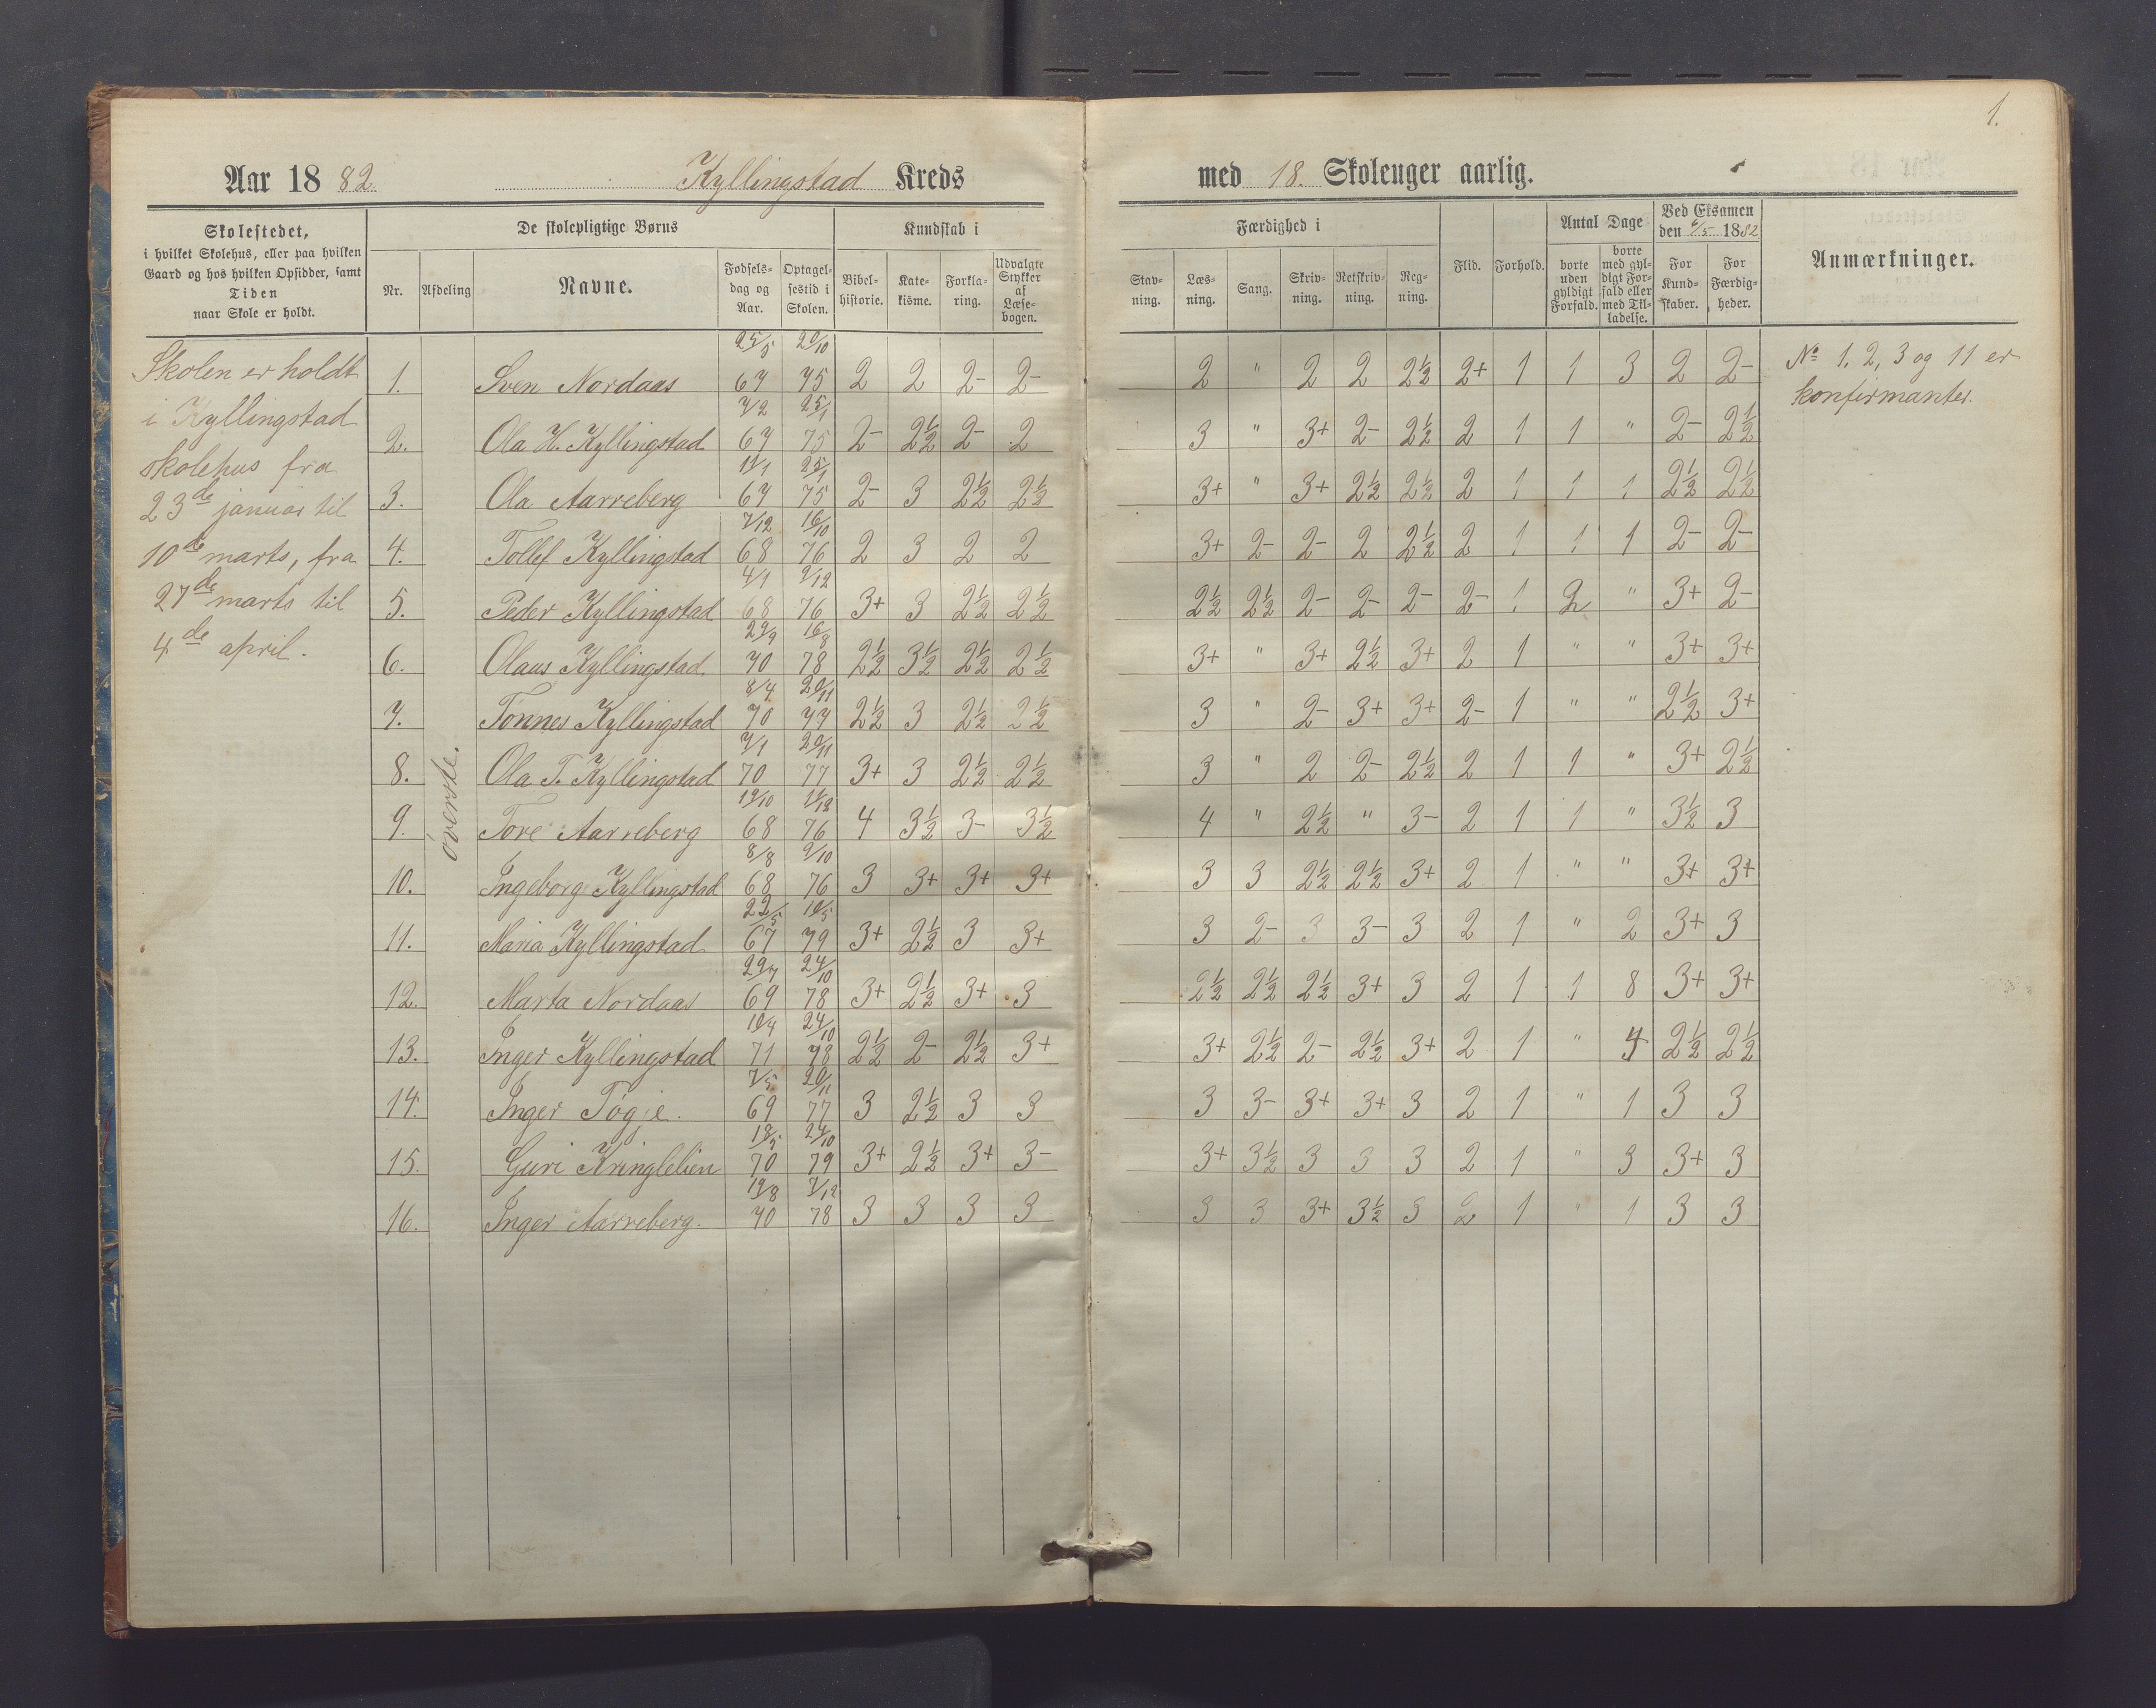 1.
Aar 1882. Kyllingstad Kreds med 18. Skoleuger aarlig.
Skolestedet,
i hvilket Skolehus, eller paa hvilken
Gaard og hos hvilken Opsidder, samt
Tiden
naar Skole er holdt.
De skolepligtige Børns
Nr. Afdeling Navne. Fødsels-dag og Aar. Optagel-sestid i Skolen.
Kundskab i
Bibel-historie. Kate-kisme. Forkla-ring. Udvalgte Stykker af Læse-bogen.
Færdighed i
Stav-ning. Læs-ning. Sang. Skriv-ning. Retskriv-ning. Reg-ning.
Flid. Forhold.
Antal Dage
borte uden gyldigt Forfald. borte med gyl-digt For-fald eller med Til-ladelse.
Ved Eksamen
den 6/5 1882
For Kund-skaber. For Færdig-heder.
Anmærkninger.
Skolen er holdt
i Kyllingstad
skolehus fra
23de januar til
10de marts, fra
27de marts til
4de april.
øverste.
1. Sven Nordaas 25/5 67 20/10 75 2 2 2- 2- 2 " 2 2 2½ 2+ 1 1 3 2 2-
2. Ola H. Kyllingstad 7/2 67 25/1 75 2- 2½ 2- 2 3 " 3+ 2- 2½ 2 1 1 " 2- 2½
3. Ola Aarreberg 67 25/1 75 2- 3 2½ 2½ 3+ " 3+ 2½ 2½ 2 1 1 1 2½ 2½
4. Tollef Kyllingstad 7/12 68 16/10 76 2 3 2 2 3+ 2- 2- 2 2½ 2 1 1 1 2- 2-
5. Peder Kyllingstad 4/1 68 9/12 76 3+ 3 2½ 2½ 2½ 2½ 2- 2- 2- 2- 1 2 " 3+ 2-
6. Olaus Kyllingstad 29/9 70 16/8 78 2½ 3½ 2½ 2½ 3+ " 3+ 2½ 3+ 2 1 " " 3+ 3+
7. Tönnes Kyllingstad 8/4 70 20/11 77 2½ 3 2½ 2½ 3 " 2- 3+ 3+ 2- 1 " " 2½ 3+
8. Ola T. Kyllingstad 7/1 70 20/11 77 3+ 3 2½ 2½ 3 " 2 2- 2½ 2 1 1 " 3+ 2½
9. Tore Aarreberg 19/10 68 11/12 76 4 3½ 3- 3½ 4 " 2½ " 3- 2 1 1 " 3½ 3
10. Ingeborg Kyllingstad 8/8 68 9/10 76 3 3+ 3+ 3+ 3 3 2½ 2½ 3+ 2 1 " " 3+ 3+
11. Maria Kyllingstad 22/5 67 10/5 79 3+ 2½ 3 3+ 3 2- 3 3- 3 2 1 " 2 3+ 3
12. Marta Nordaas 29/7 69 24/10 78 3+ 2½ 3+ 3 2½ 2½ 2½ 3+ 3 2 1 1 8 3+ 3+
13. Inger Kyllingstad 10/4 71 24/10 78 2½ 2- 2½ 3+ 3+ 2½ 2- 2½ 3+ 2 1 " 4 2½ 2½
14. Inger Tøgje. 7/5 69 20/11 77 3 2½ 3 3 3 3- 3+ 3+ 3 2 1 " 1 3 3
15. Guri Kringlelien 18/5 70 24/10 79 3+ 2½ 3+ 3- 3+ 3½ 3 3 3 2 1 " 3 3+ 3
16. Inger Aarreberg. 19/8 70 7/12 78 3 3 3 3 3 3 3+ 3½ 3 2 1 " 1 3 3
No 1, 2, 3 og 11 er
konfirmanter.